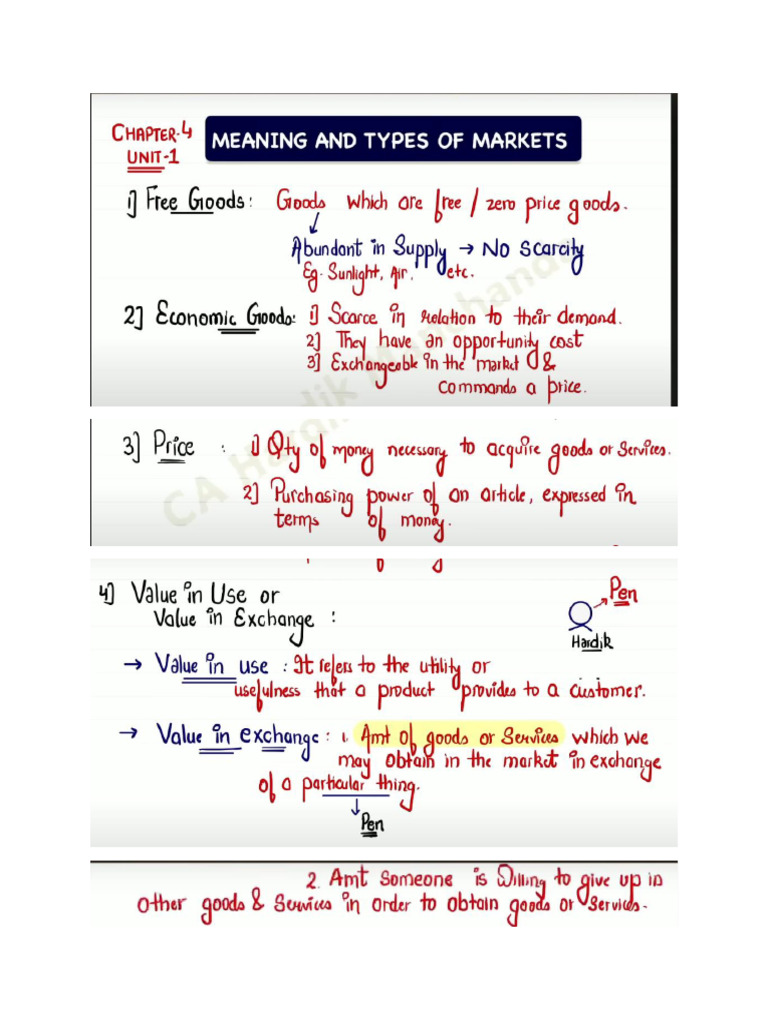 CHAPTER-4
UNIT-1
MEANING AND TYPES OF MARKETS
1] Free Goods: Goods which are free / zero price goods.
Abundant in Supply → No Scarcity
Eg. Sunlight, Air, etc.
2] Economic Goods: 1] Scarce in relation to their demand.
2] They have an opportunity cost
3] Exchangeable in the market &
commands a price.
3] Price : 1] Qty of money necessary to acquire goods or services.
2] Purchasing power of an article, expressed in
terms of money.
4] Value in Use or
Value in Exchange :
Pen
Hardik
→ Value in use : It refers to the utility or
usefulness that a product provides to a customer.
→ Value in exchange : 1. Amt of goods or Services which we
may obtain in the market in exchange
of a particular thing.
Pen
2. Amt someone is willing to give up in
other goods & services in order to obtain goods or services.
CA Hardik Manchanda